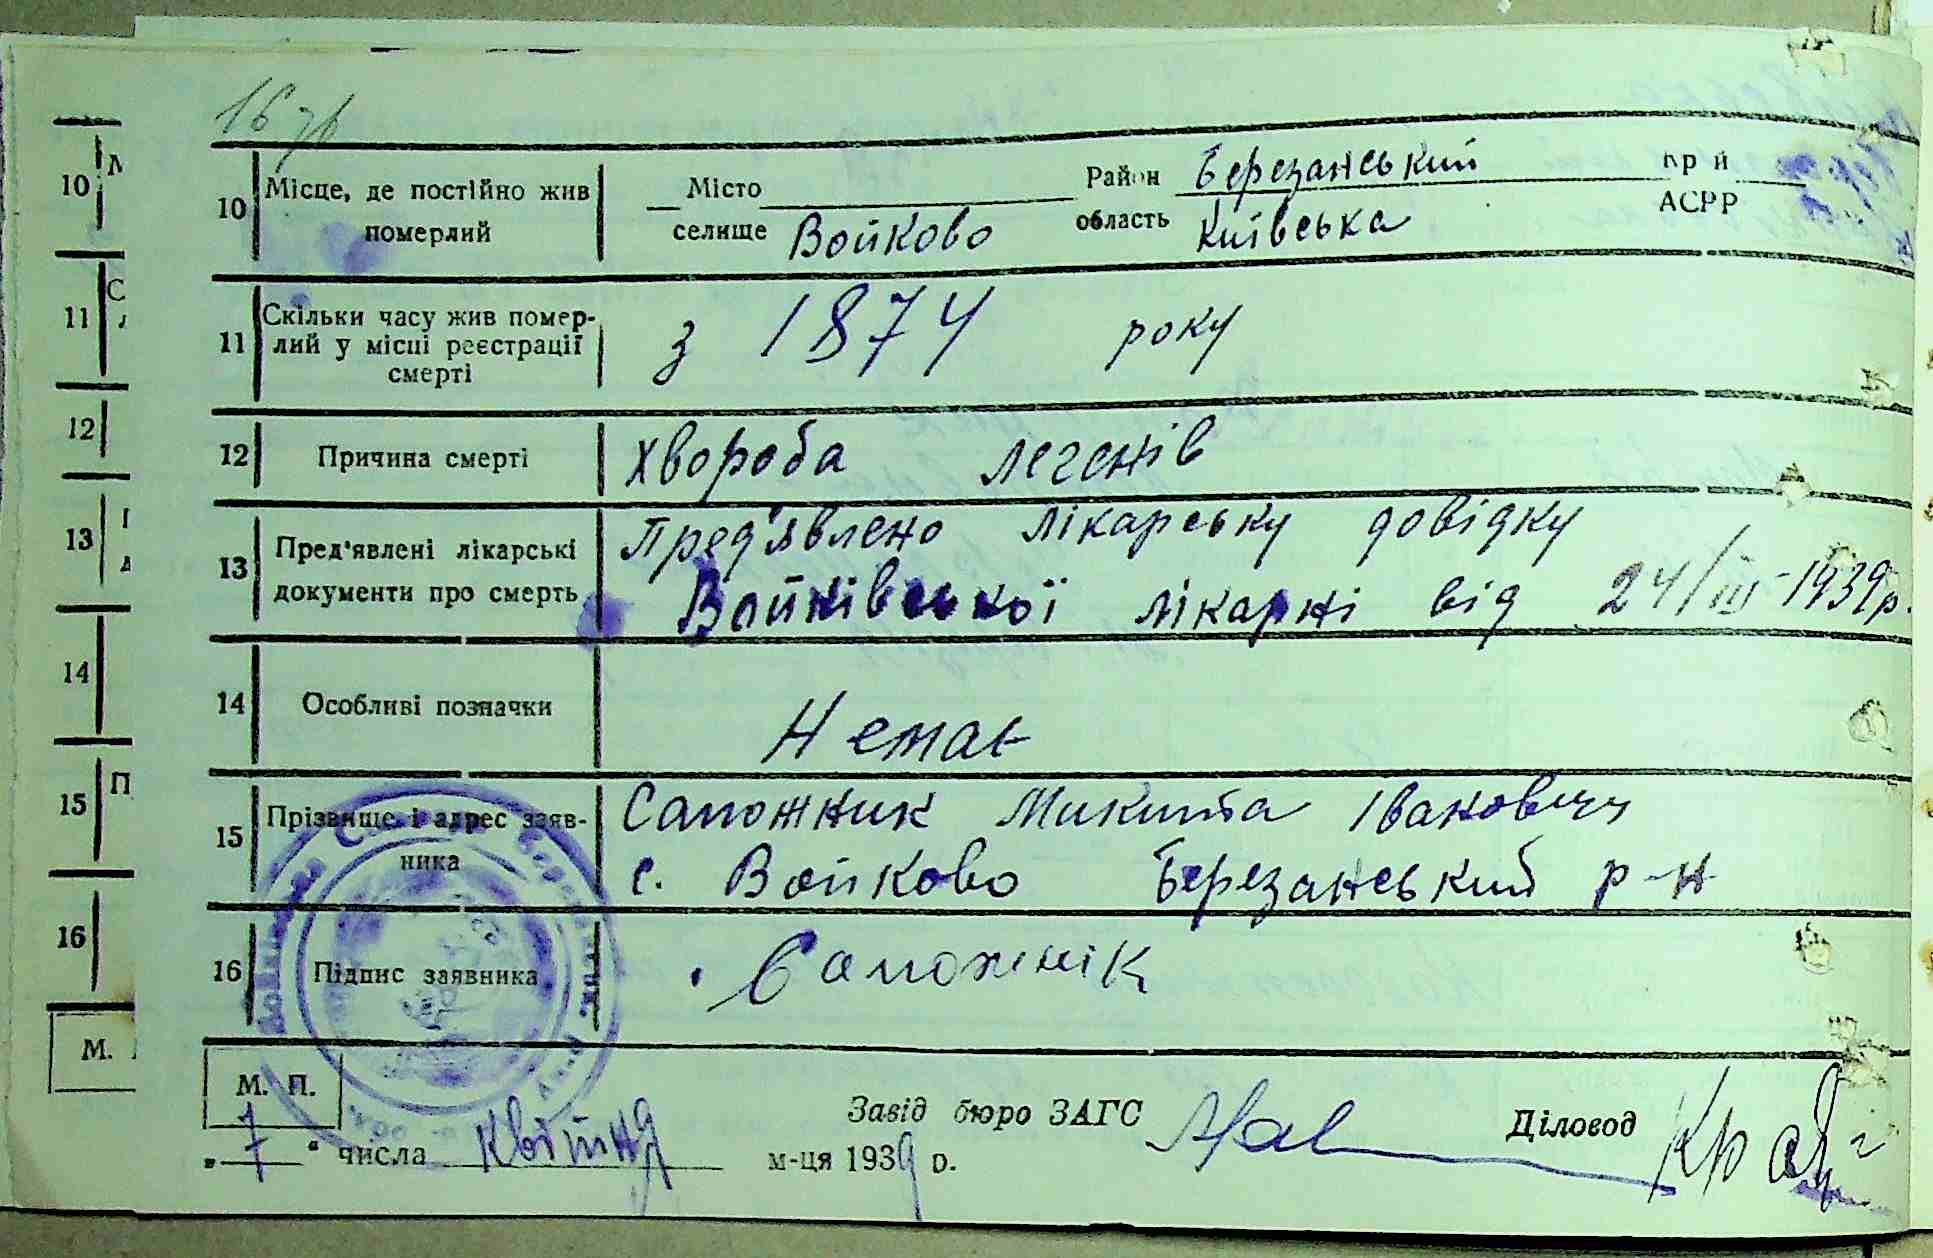 10 Місце, де постійно жив померлий
Місто
селище Войково
Район Березанський
область Київська
АСРР
11 Скільки часу жив помер-
лий у місці реєстрації
смерті
з 1874 року
12 Причина смерті
Хвороба легенів
13 Пред'явлені лікарські
документи про смерть
Пред'явлено лікарську довідку
Войківської лікарні від 24/III-1939р.
14 Особливі позначки
Немає
15 Прізвище і адрес заяв-
ника
Сапожник Микита Іванович
с. Войково Березанський р-н
16 Підпис заявника
Сапожнік
М. П.
Завід бюро ЗАГС
Діловод
„7“ числа квітня м-ця 1939 р.
10
11
12
13
14
15
16
М.